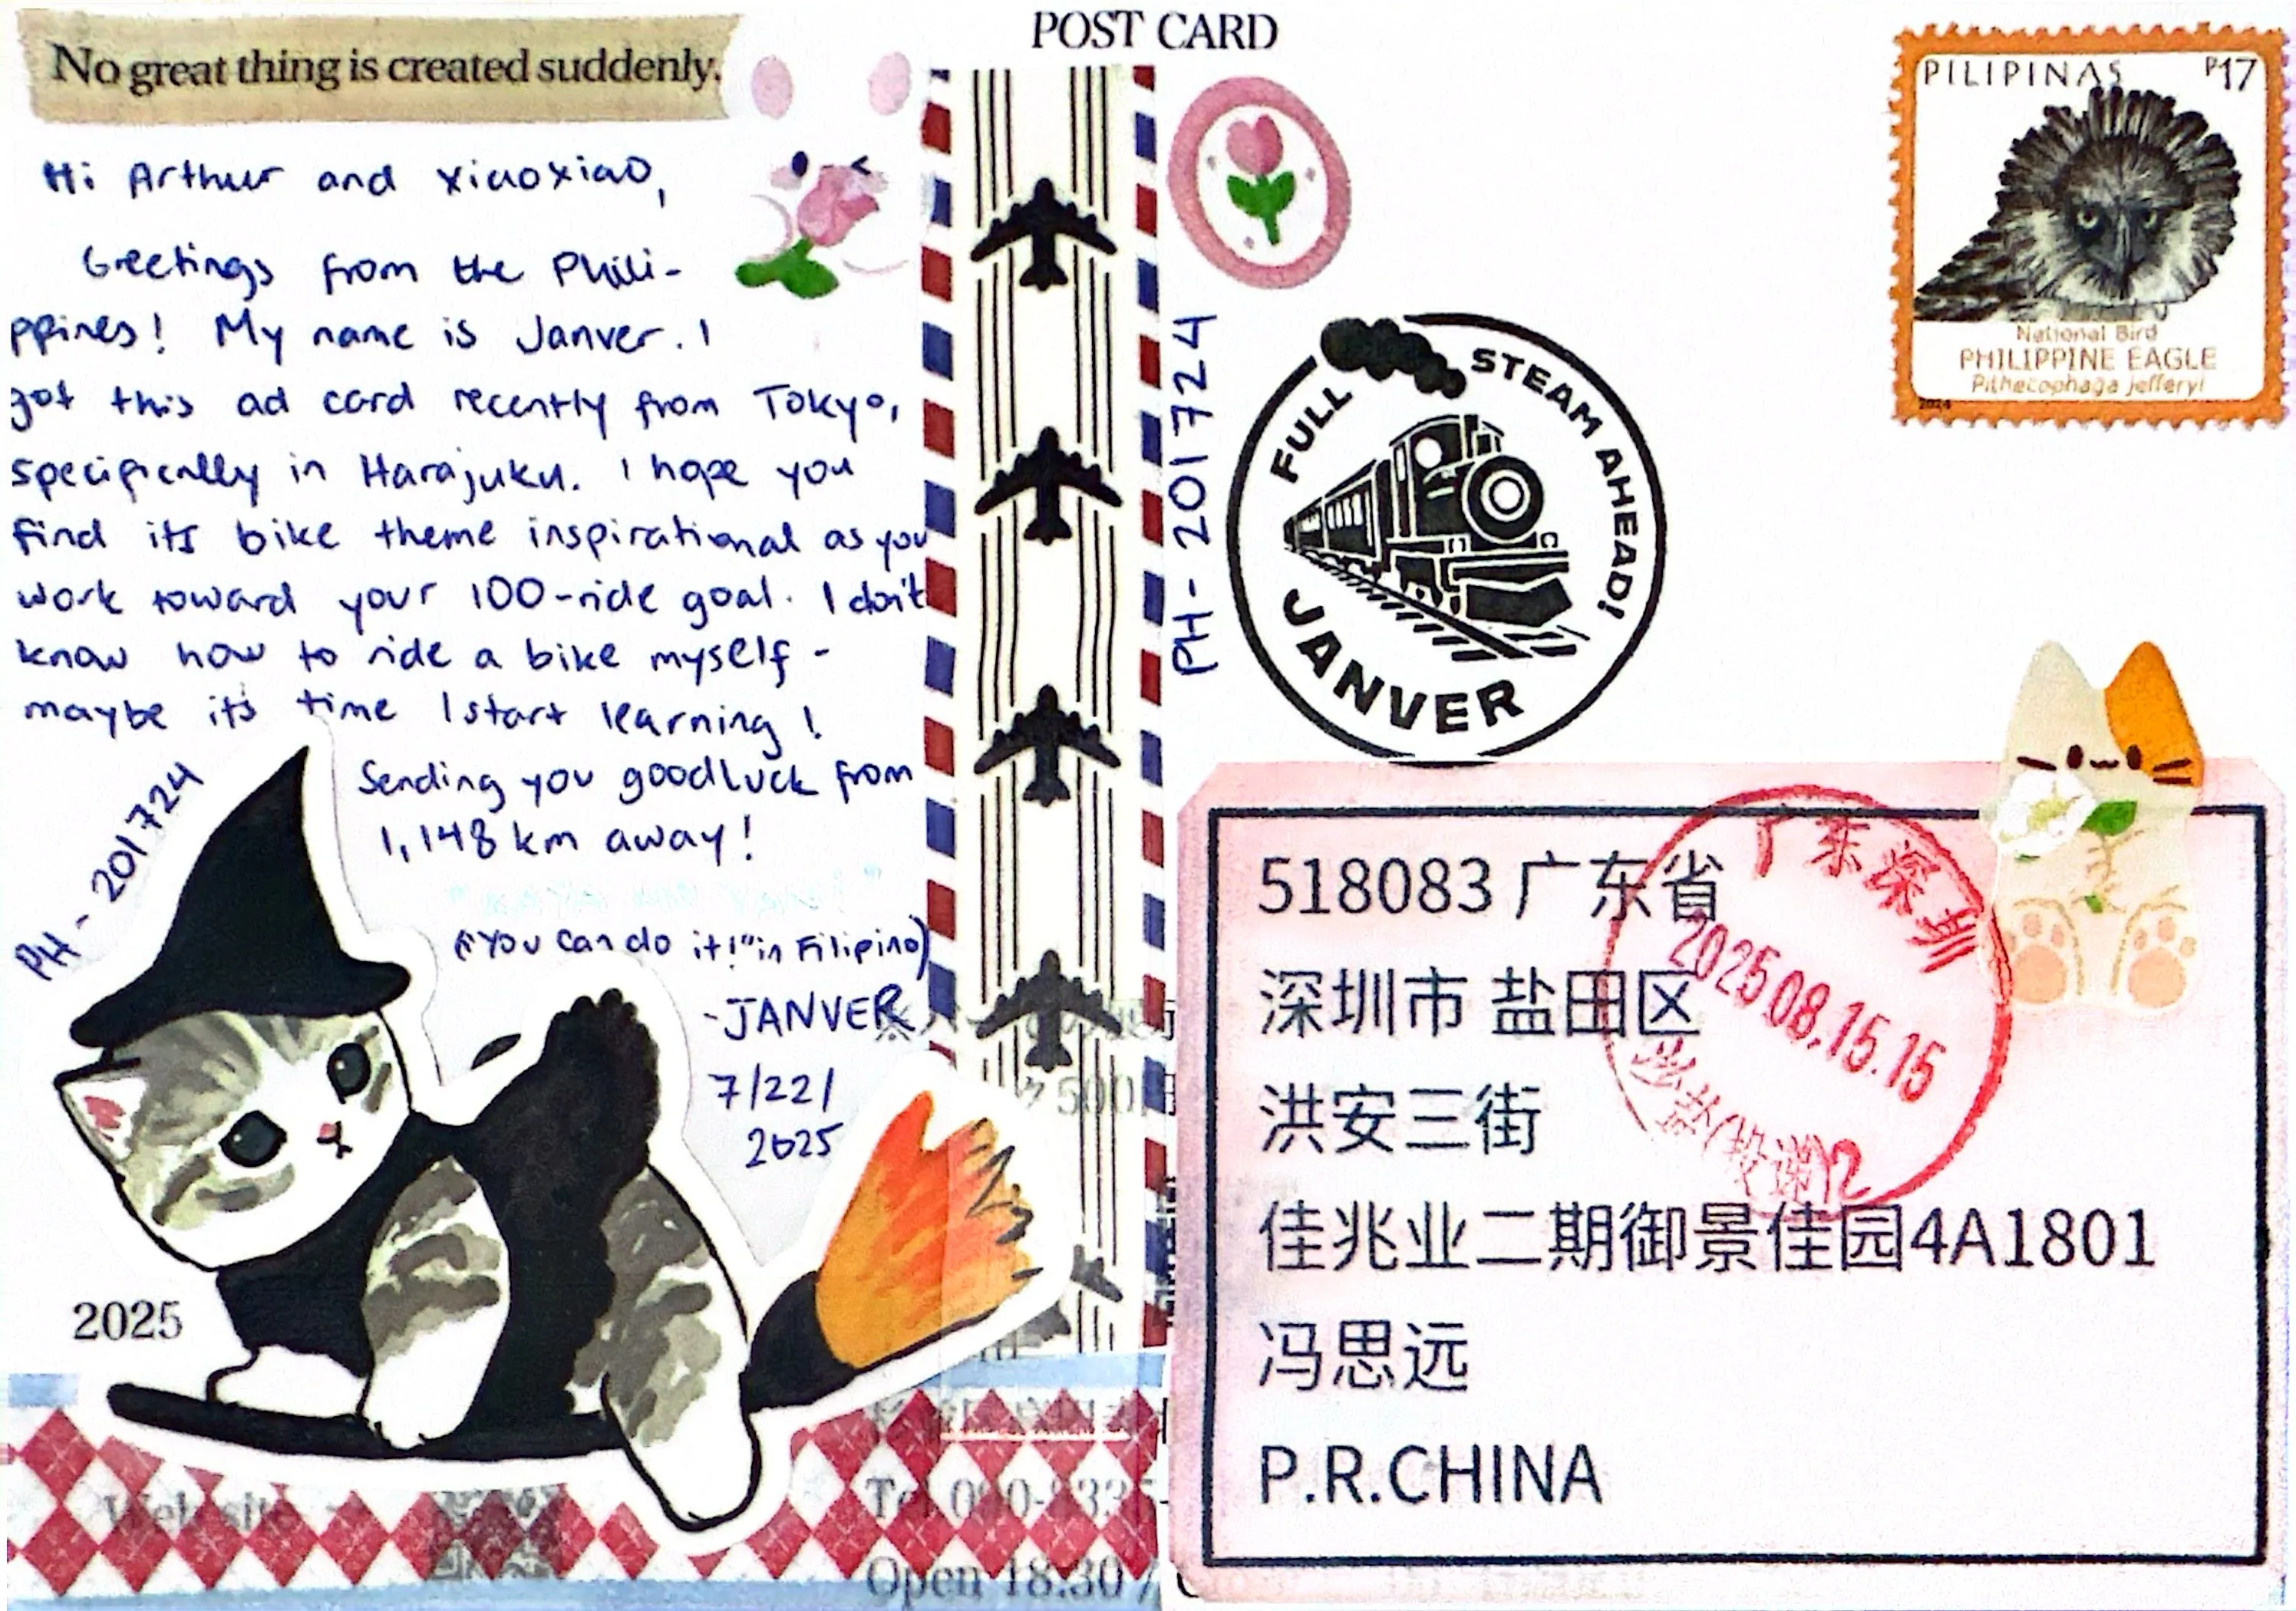 POST CARD
No great thing is created suddenly.
Hi Arthur and xiaoxiao,
Greetings from the Phili-
ppines! My name is Janver. I
got this ad card recently from Tokyo,
specifically in Harajuku. I hope you
find its bike theme inspirational as you
work toward your 100-ride goal. I don't
know how to ride a bike myself -
maybe it's time I start learning!
Sending you goodluck from
1,148 km away!
("You can do it!" in Filipino)
-JANVER
7/22/
2025
PH - 201724
2025
Website
Tel 090-8335-
Open 18:30 /
PH - 201724
FULL STEAM AHEAD!
JANVER
PILIPINAS P17
National Bird
PHILIPPINE EAGLE
Pithecophaga jefferyi
2024
518083 广东省
深圳市 盐田区
洪安三街
佳兆业二期御景佳园4A1801
冯思远
P.R.CHINA
广东深圳
2025.08.15.15
(投递)2